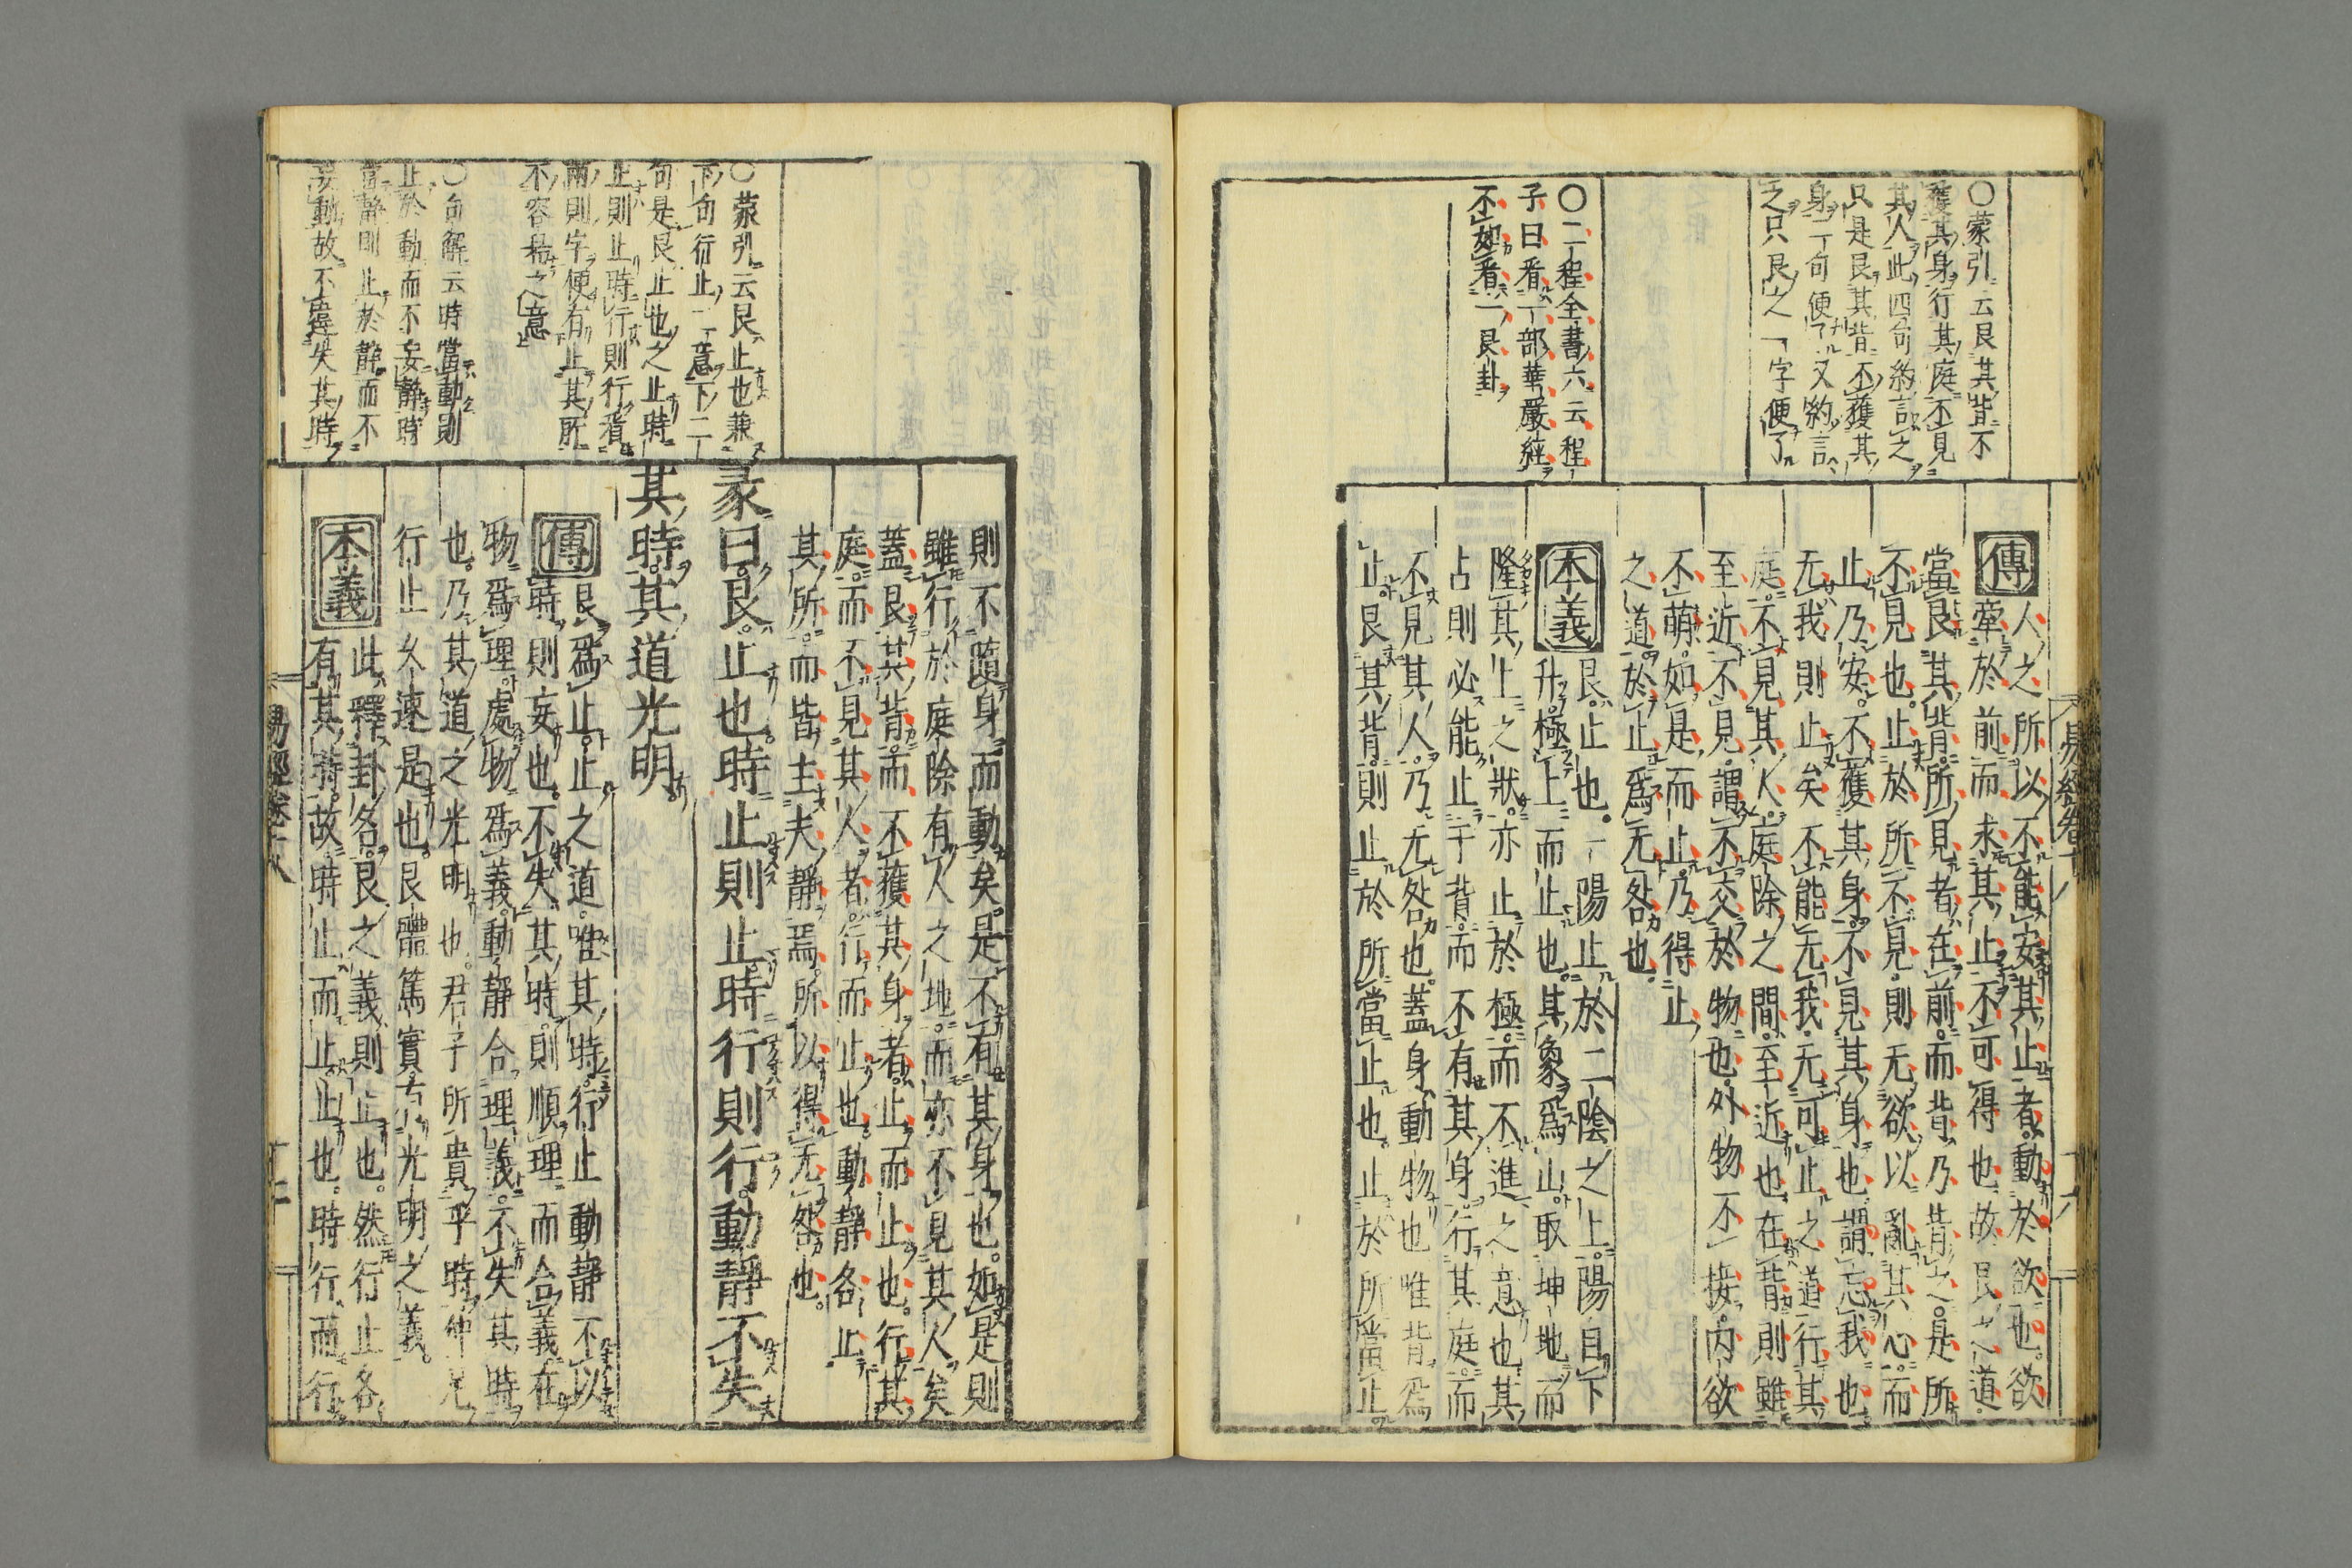 〇蒙引云艮其背不
獲其身行其庭不見
其人此四句約言之
只是艮其背不獲其
身一句便了又約言
之只艮之一字便了
〇二程全書六云程
子曰看一部華嚴經
不如看一艮卦
易經卷十八
傳
人之所以不能安其止者動於欲也欲
牽於前而求其止不可得也故艮之道
當艮其背所見者在前而背乃背之是所
不見也止於所不見則无欲以亂其心而
止乃安不獲其身不見其身也謂忘我也
无我則止矣不能无我无可止之道行其
庭不見其人庭除之間至近也在背則雖
至近不見謂不交於物也外物不接內欲
不萌如是而止乃得止
之道於止爲无咎也
本義
艮止也一陽止於二陰之上陽自下
升極上而止也其象爲山取坤地而
隆其上之狀亦止於極而不進之意也其
占則必能止于背而不有其身行其庭而
不見其人乃无咎也蓋身動物也唯背爲
止艮其背則止於所當止也止於所當止
則不隨身而動矣是不有其身也如是則
雖行於庭除有人之地而亦不見其人矣
蓋艮其背而不獲其身者止而止也行其
庭而不見其人者行而止也動靜各止
其所而皆主夫靜焉所以得无咎也
〇蒙引云艮止也兼
下句行止一意下二
句是艮止也之止時
止則止時行則行看
兩則字便有止其所
不容易之意
〇句解云時當動則
止於動而不妄靜時
當靜則止於靜而不
妄動故不違失其時
彖曰艮止也時止則止時行則行動靜不失
其時其道光明
傳
艮爲止止之道唯其時行止動靜不以
時則妄也不失其時則順理而合義在
物爲理處物爲義動靜合理義不失其時
也乃其道之光明也君子所貴乎時仲尼
行止久速是也艮體篤實有光明之義
本義
此釋卦名艮之義則止也然行止各
有其時故時止而止止也時行而行
易經卷十八
十二